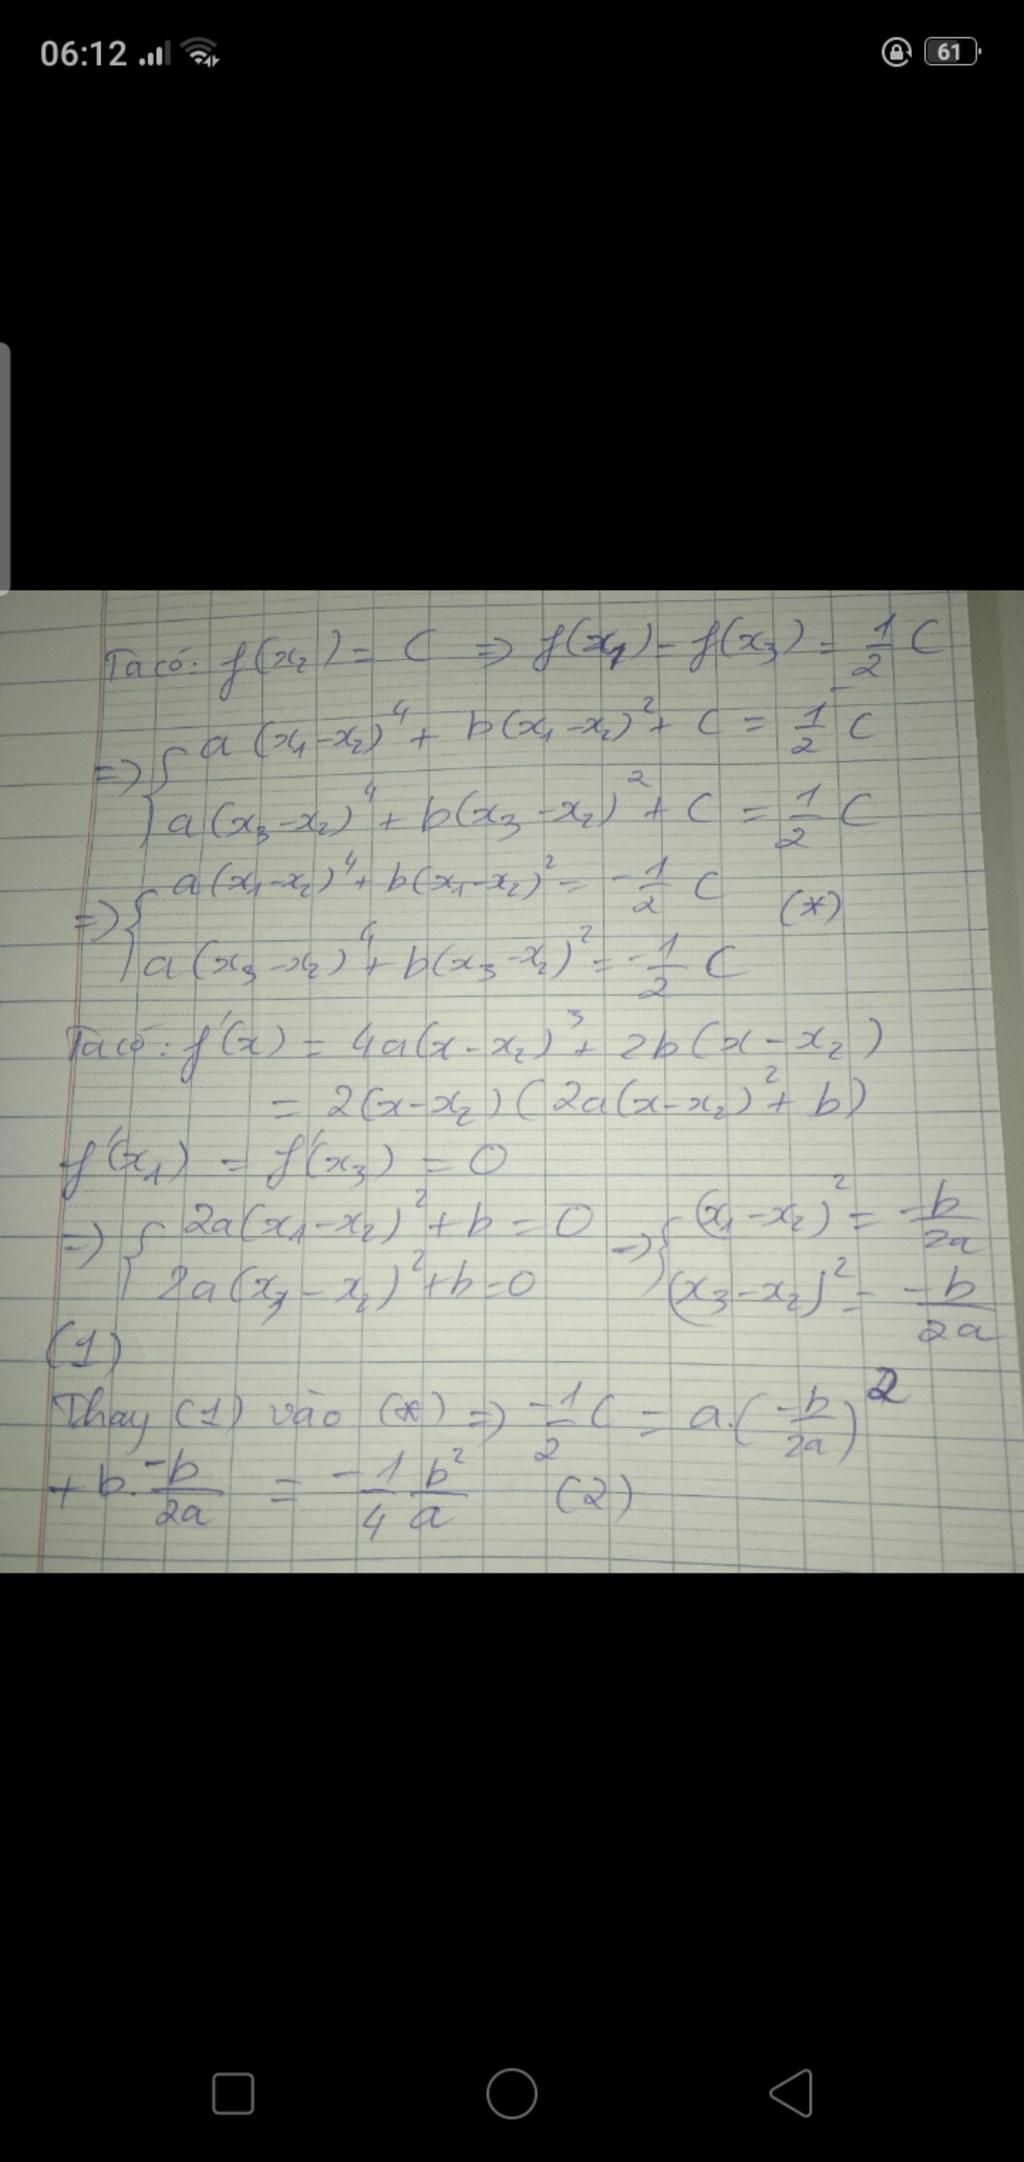 06:12
61
Ta có: f(x₂) = C ⇒ f(x₁) = f(x₃) = 1/2 C
⇒ { a(x₁-x₂)⁴ + b(x₁-x₂)² + C = 1/2 C
a(x₃-x₂)⁴ + b(x₃-x₂)² + C = 1/2 C
⇒ { a(x₁-x₂)⁴ + b(x₁-x₂)² = -1/2 C (*)
a(x₃-x₂)⁴ + b(x₃-x₂)² = -1/2 C
Ta có: f'(x) = 4a(x-x₂)³ + 2b(x-x₂)
= 2(x-x₂)(2a(x-x₂)² + b)
f'(x₁) = f'(x₃) = 0
⇒ { 2a(x₁-x₂)² + b = 0 ⇒ { (x₁-x₂)² = -b/2a
2a(x₃-x₂)² + b = 0 (x₃-x₂)² = -b/2a
(1)
Thay (1) vào (*) ⇒ -1/2 C = a.(-b/2a)²
+ b. -b/2a = -1/4 b²/a (2)